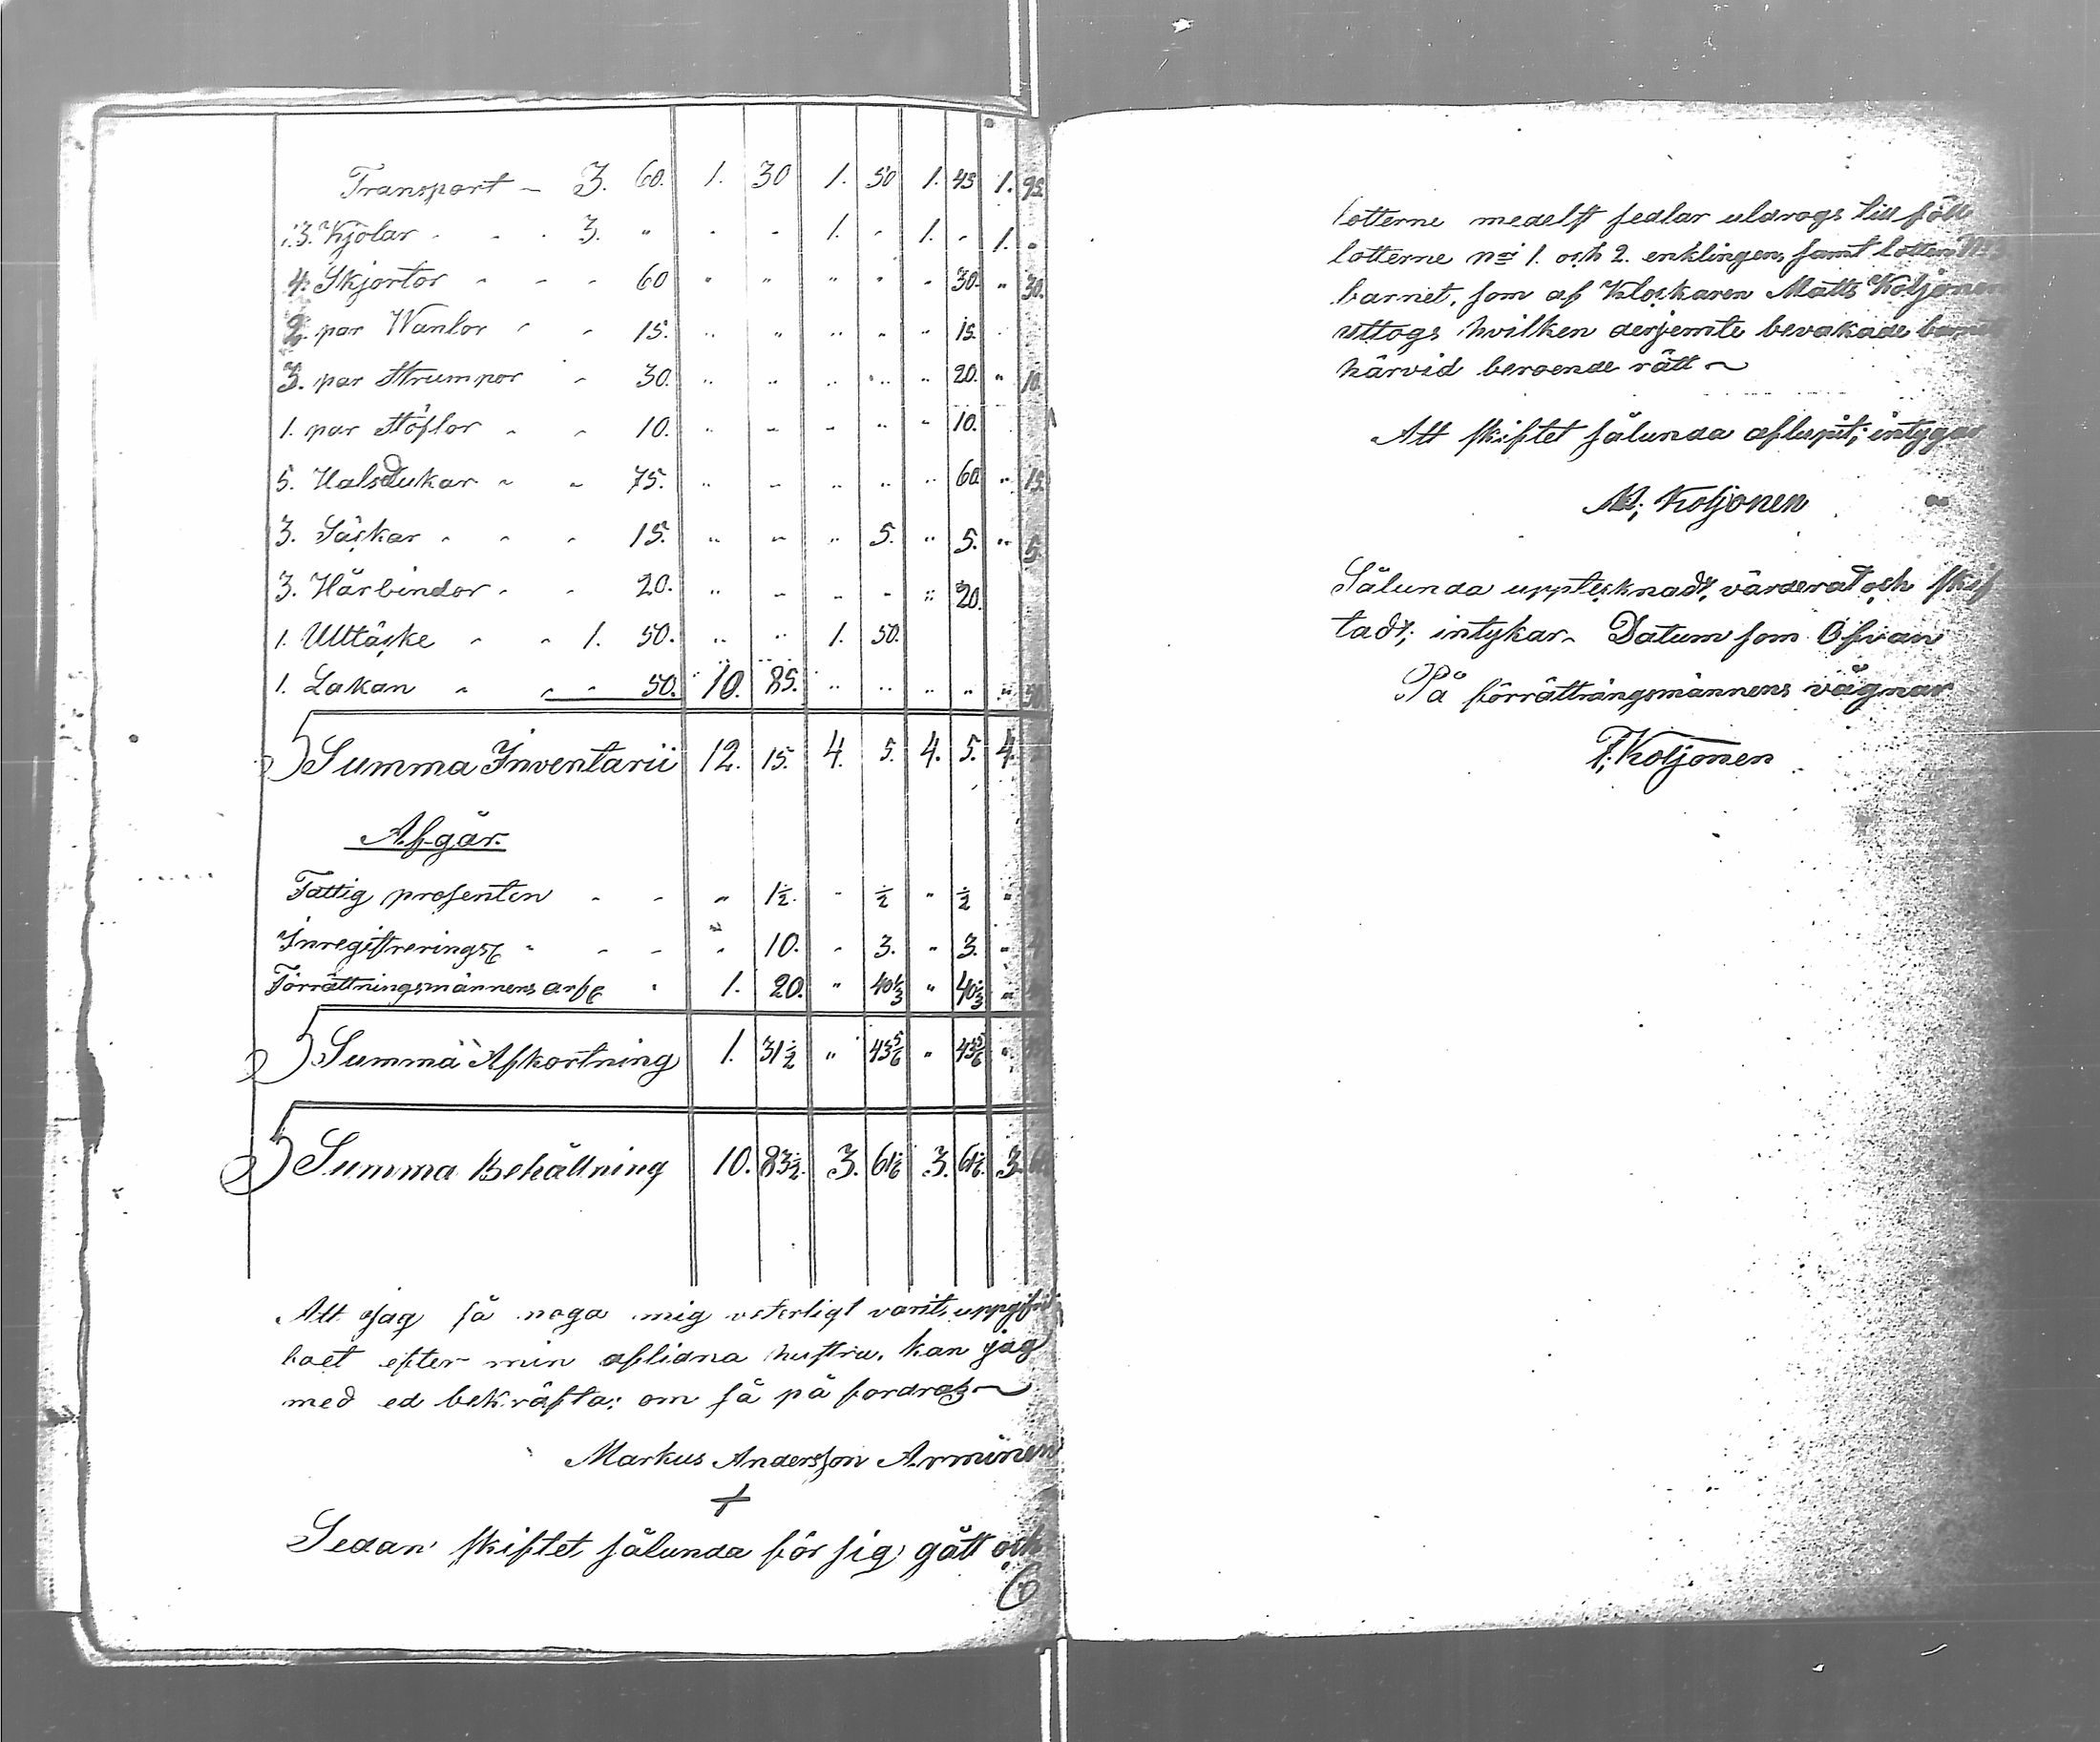 Transport - 3. 60. 1. 30 1. 50 1. 45 1. 95.
3. Kjolar - - - 3. " - - 1. - 1. - 1. -
4. Skjortor - - - 60 " " " " " 30. " 30.
2. par Wantor - - 15. " " " " " 15.
3. par Strumpor - 30. " " " " " 20. " 10.
1. par Stöflor - - 10. " " " " " 10.
5. Halsdukar - - 75. " " " " " 60. " 15.
3. Säckar - - - 15. " " " 5. " 5. " 5.
3. Hårbindor - - 20. " " " " " 20.
1. Ulltäcke - - 1. 50. " " 1. 50.
1. Lakan - - - 50. 10. 85. " " " " " 50.
Summa Inventarii 12. 15. 4. 5. 4. 5. 4.
Afgår.
Fattig prosenten - - " 1½. " ½ " ½ "
Inregistrerings - - - " 10. " 3. " 3. " 4
Förrättningsmännens arf " 1. 20. " 40⅓ " 40⅓ "
Summa Afkortning 1. 31½ " 43⅚ " 43⅚ "
Summa Behållning 10. 83½. 3. 61⅙ 3. 61⅙. 3.
Att jag så noga mig veterligt varit, uppgifvit
boet efter min aflidna hustru, kan jag
med ed bekräfta; om så på fordras
Markus Andersson Arminen
+
Sedan skiftet sålunda för sig gått och
lotterne medelst sedlar utdrogs till föll
lotterne No 1. och 2. enklingen, samt lotten No 3
barnet, som af Klockaren Matts Koljonen
uttogs hvilken derjemte bevakade barnets
härvid beroende rätt
Att skiftet sålunda aflupit; intygar
M. Koljonen
Sålunda upptecknadt, värderat och skif
tadt; intykar. Datum som Ofvan
På förrättningsmännens vägnar
F. Koljonen